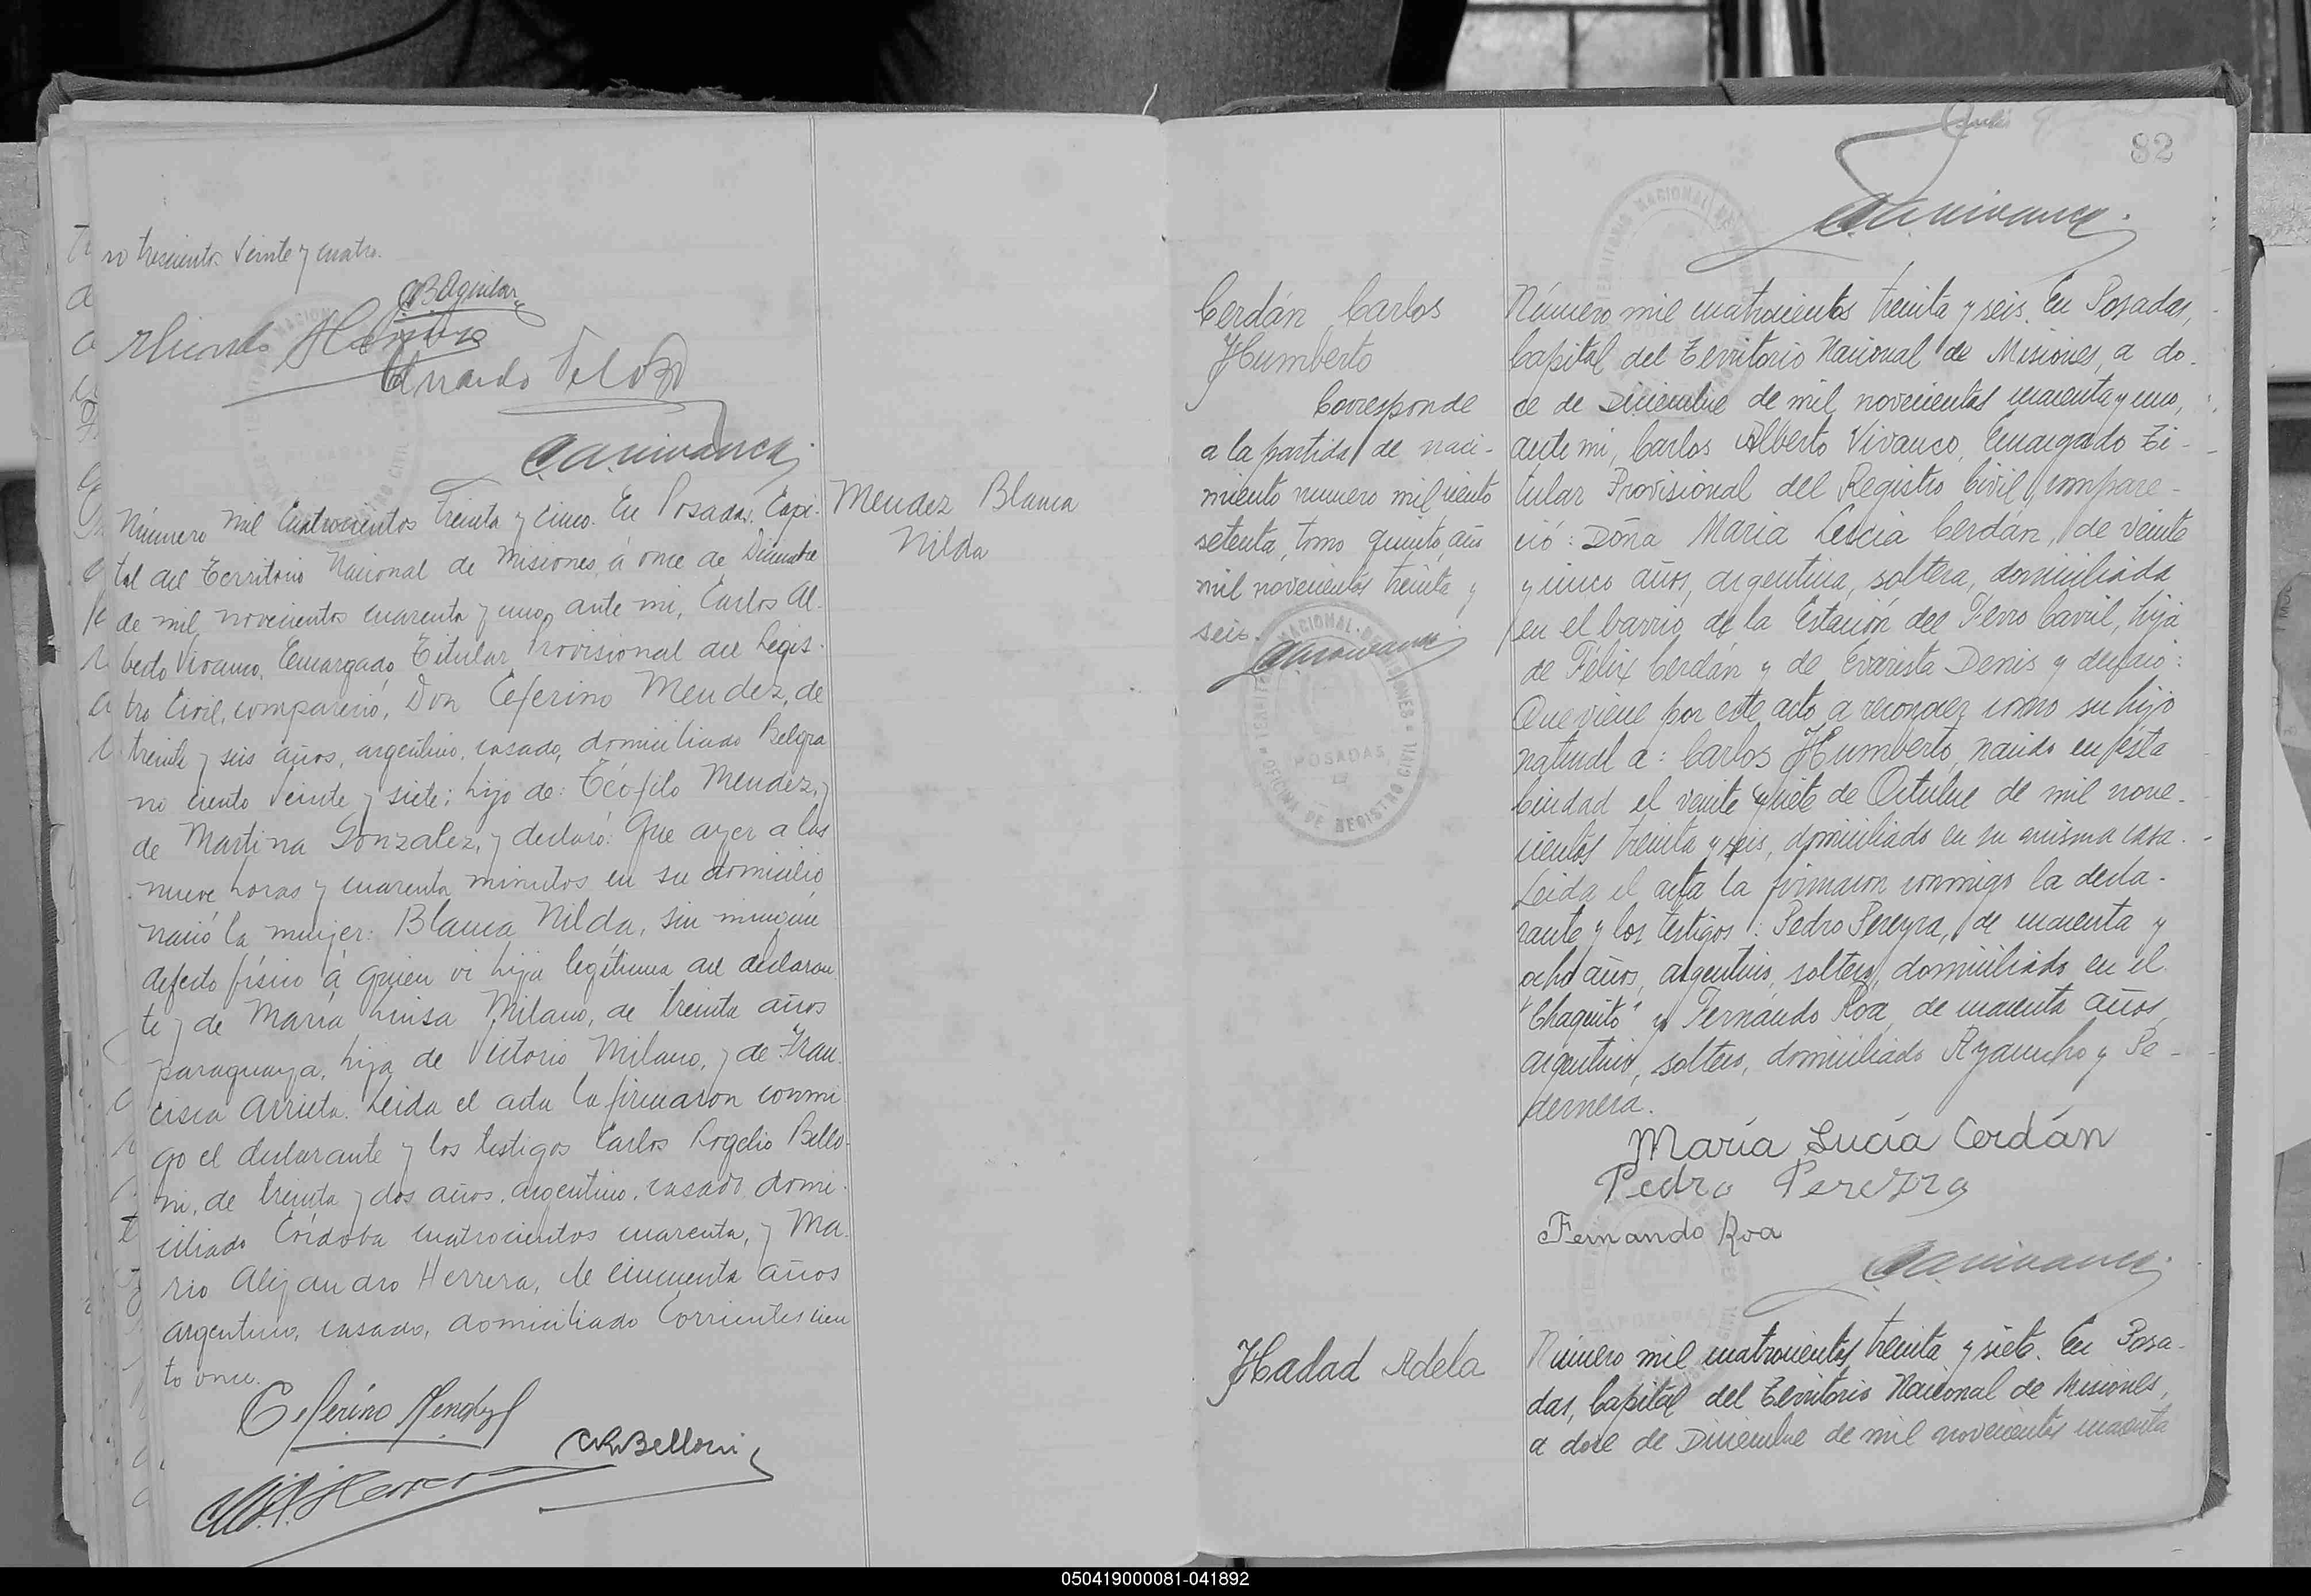 no trescientos veinte y cuatro.
CBAguilar
Eduardo Velozo
CAVivanco
Número mil cuatrocientos treinta y cinco. En Posadas, Capi-
tal del Territorio Nacional de Misiones, á once de Diciembre
de mil novecientos cuarenta y uno, ante mi, Carlos Al-
berto Vivanco, Encargado Titular Provisional del Regis-
tro Civil, compareció, Don Ceferino Mendez, de
treinta y seis años, argentino, casado, domiciliado Belgra
no ciento veinte y siete; hijo de: Teófilo Mendez, y
de Martina Gonzalez, y declaró: Que ayer a las
nueve horas y cuarenta minutos en su domicilio
nació la mujer: Blanca Nilda, sin ningún
defecto físico á quien vi hija legítima del declaran
te y de María Luisa Milano, de treinta años
paraguaya, hija de Victorio Milano, y de Fran-
cisca Arrieta. Leida el acta la firmaron conmi
go el declarante y los testigos Carlos Rogelio Bello-
ni, de treinta y dos años, argentino, casado domi-
ciliado Córdoba cuatrocientos cuarenta, y Ma-
rio Alejandro Herrera, de cincuenta años
argentino, casado, domiciliado Corrientes cien
to once.
Ceferino Mendez
CRBelloni
M.A.Herrera
Mendez Blanca
Nilda
82
CAVivanco
Cerdán Carlos
Humberto
Corresponde
a la partida de naci-
miento numero mil ciento
setenta, tomo quinto, año
mil novecientos treinta y
seis.
CAVivanco
POSADAS
OFICINA DE REGISTRO CIVIL
Número mil cuatrocientos treinta y seis. En Posadas,
Capital del Territorio Nacional de Misiones, a do-
ce de Diciembre de mil novecientos cuarenta y uno,
ante mi, Carlos Alberto Vivanco, Encargado Ti-
tular Provisional del Registro Civil, compare-
ció: Doña Maria Lucia Cerdán, de veinte
y cinco años, argentina, soltera, domiciliada
en el barrio de la Estación del Ferro Carril, hija
de Félix Cerdán y de Evarista Denis y declaró:
Que viene por este acto a reconocer como su hijo
natural a: Carlos Humberto, nacido en ésta
Ciudad el veinte y siete de Octubre de mil nove-
cientos treinta y seis, domiciliado en su misma casa.
Leida el acta la firmaron conmigo la decla-
rante y los testigos: Pedro Pereyra, de cuarenta y
ocho años, argentino, soltero, domiciliado en el
"Chaquito" y Fernando Roa, de cuarenta años,
argentino, soltero, domiciliado Ayacucho y Pe-
dernera.
María Lucía Cerdán
Pedro Pereyra
Fernando Roa
CAVivanco
Hadad Adela
Número mil cuatrocientos treinta y siete. En Posa-
das, Capital del Territorio Nacional de Misiones,
a doce de Diciembre de mil novecientos cuarenta
050419000081-041892